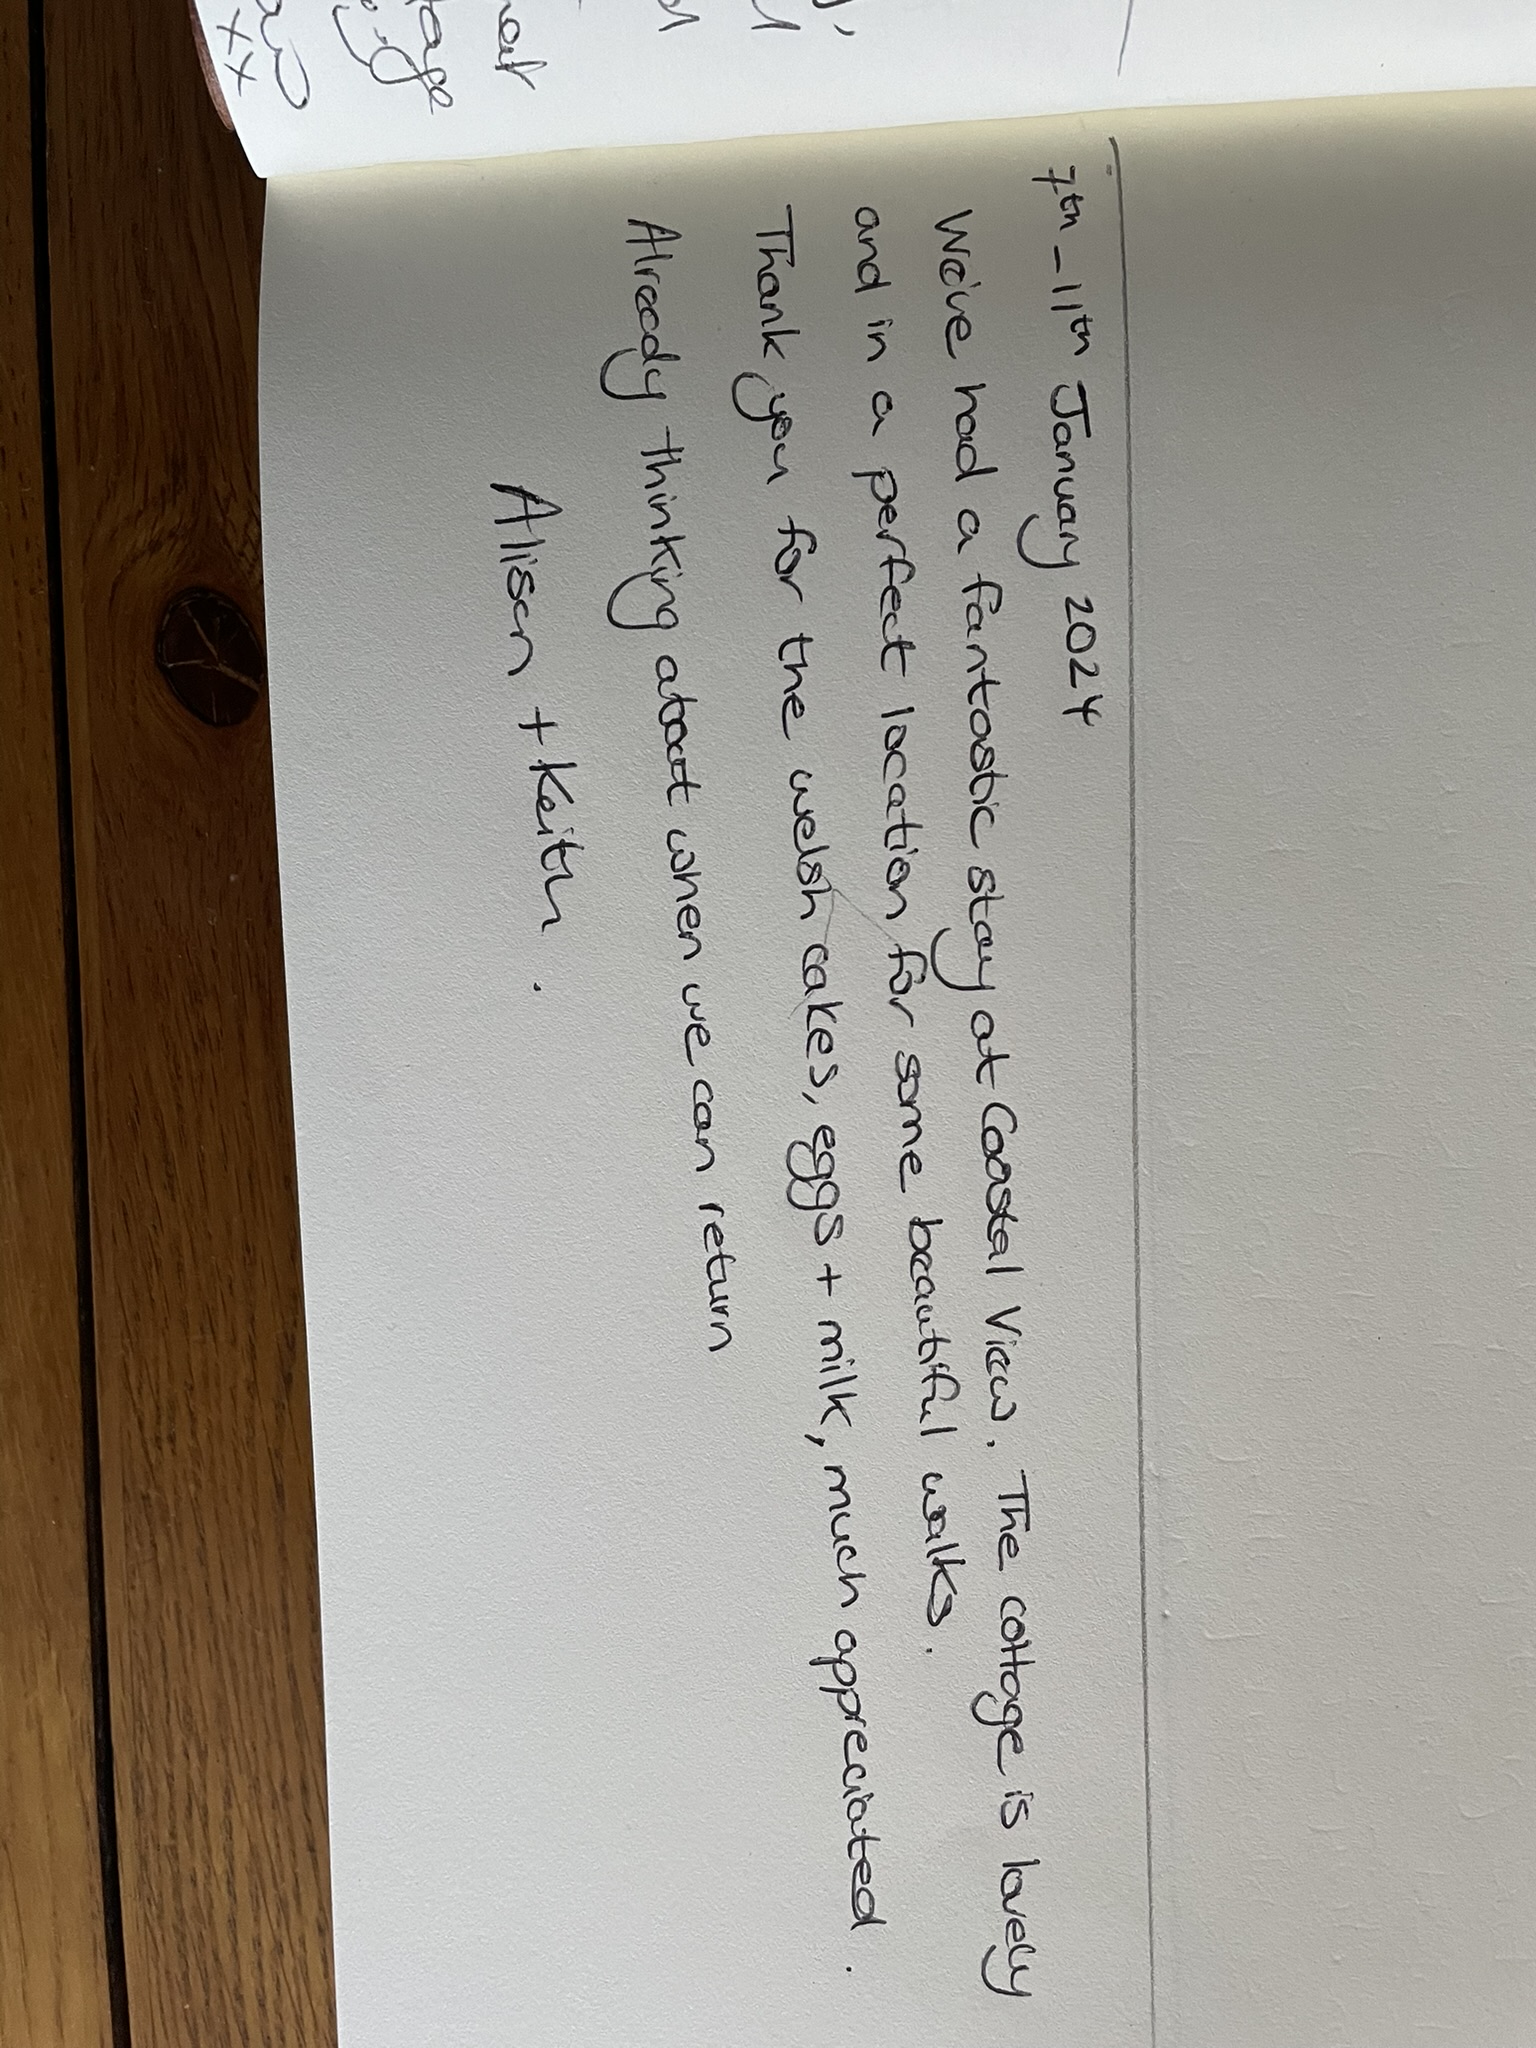 7th - 11th January 2024
We've had a fantastic stay at Coastal View. The cottage is lovely
and in a perfect location for some beautiful walks.
Thank you for the welsh cakes, eggs + milk, much appreciated.
Already thinking about when we can return
Alison + Keith.
xx